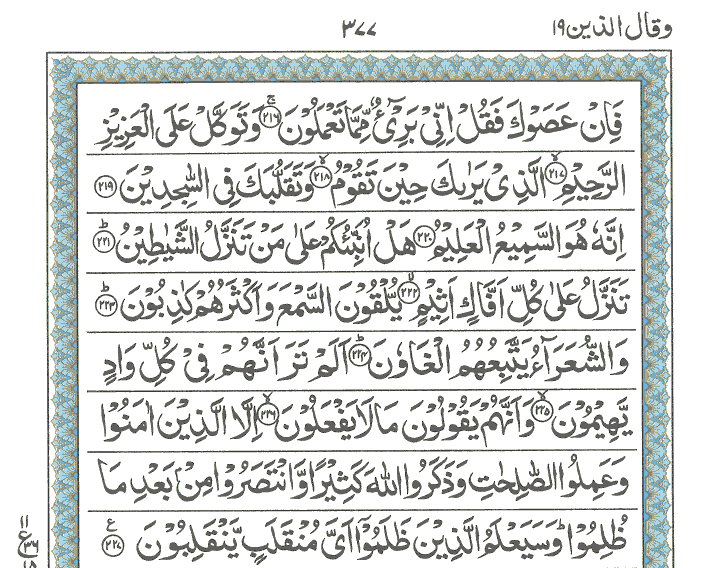 وقال الذين ١٩ ٣٧٧
فَاِنْ عَصَوْكَ فَقُلْ اِنِّىْ بَرِىْٓءٌ مِّمَّا تَعْمَلُوْنَ ۚ﴿۲۱۶﴾ وَتَوَكَّلْ عَلَى الْعَزِيْزِ
الرَّحِيْمِ ۙ﴿۲۱۷﴾ الَّذِىْ يَرٰىكَ حِيْنَ تَقُوْمُ ۙ﴿۲۱۸﴾ وَتَقَلُّبَكَ فِى السّٰجِدِيْنَ ﴿۲۱۹﴾
اِنَّهٗ هُوَ السَّمِيْعُ الْعَلِيْمُ ﴿۲۲۰﴾ هَلْ اُنَبِّئُكُمْ عَلٰى مَنْ تَنَزَّلُ الشَّيٰطِيْنُ ؕ﴿۲۲۱﴾
تَنَزَّلُ عَلٰى كُلِّ اَفَّاكٍ اَثِيْمٍ ۙ﴿۲۲۲﴾ يُّلْقُوْنَ السَّمْعَ وَاَكْثَرُهُمْ كٰذِبُوْنَ ؕ﴿۲۲۳﴾
وَالشُّعَرَآءُ يَتَّبِعُهُمُ الْغَاوٗنَ ؕ﴿۲۲۴﴾ اَلَمْ تَرَ اَنَّهُمْ فِىْ كُلِّ وَادٍ
يَّهِيْمُوْنَ ۙ﴿۲۲۵﴾ وَاَنَّهُمْ يَقُوْلُوْنَ مَا لَا يَفْعَلُوْنَ ۙ﴿۲۲۶﴾ اِلَّا الَّذِيْنَ اٰمَنُوْا
وَعَمِلُوا الصّٰلِحٰتِ وَذَكَرُوا اللّٰهَ كَثِيْرًا وَّانْتَصَرُوْا مِنْۢ بَعْدِ مَا
ظُلِمُوْا ؕ وَسَيَعْلَمُ الَّذِيْنَ ظَلَمُوْۤا اَىَّ مُنْقَلَبٍ يَّنْقَلِبُوْنَ ﴿۲۲۷﴾ ع
۱۱
ع
۳۶
۱۵